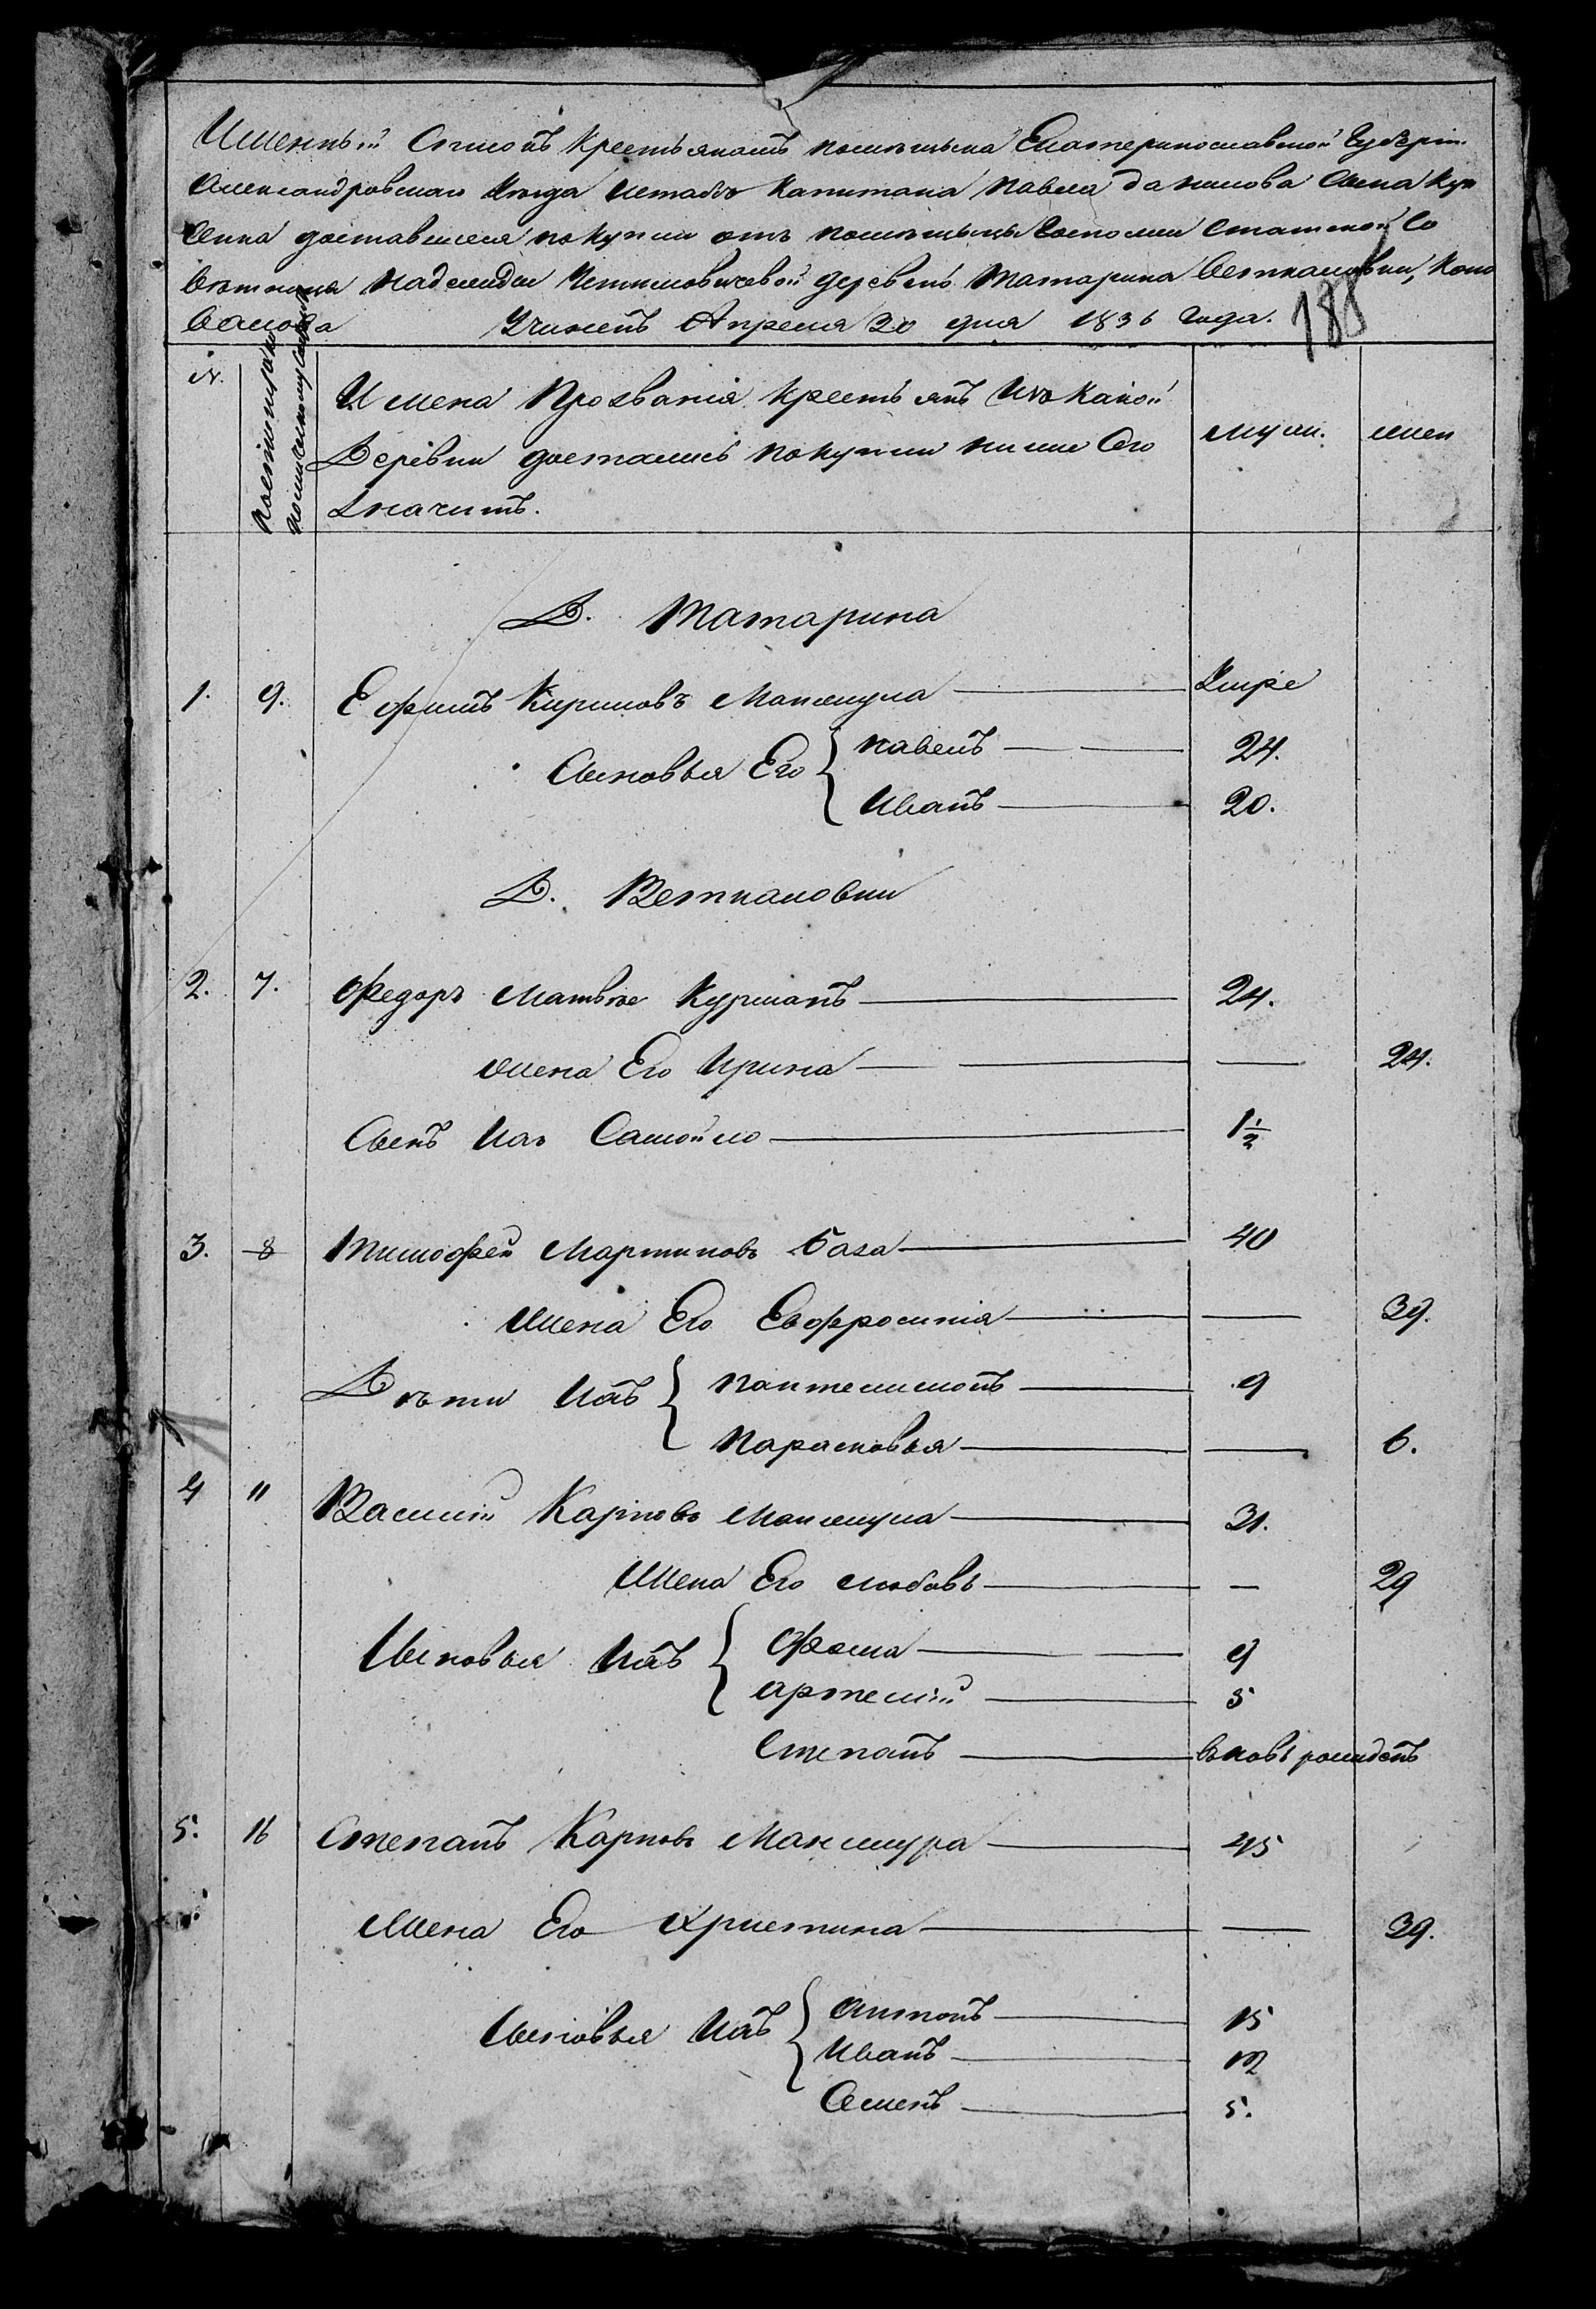 Именный Списокъ Крестьяномъ помѣщика Екатеринославской Губерніи
Александровскаго Уѣзда Штабсъ Капитана Павла Данилова Сына Куп
доставшиеся по купчи отъ помѣщицы Госпожи Статской Со
вѣтницы Надежды деревень Татарина Веткаловки, Коно
валова Учиненъ Апреля 20 дня 1836 года.
188
№.
Имена Прозванія крестьянъ Изъ какой
муж.
жен
Деревни достались по купчи ниже Сего
Значитъ.
Д. Татарина
1. 9. Ефимъ Кириловъ Манжула Умре
Сыновья Его { Павелъ 24.
Иванъ 20.
Д. Веткаловки
2. 7. Федоръ Матвѣе Курманъ 24.
Жена Его Ирина — 24.
Сынъ Ихъ Самойло 1½
3. 8 Тимофей Мартиновъ База 40
Жена Его Евфросинія — 39.
Дѣти Ихъ { Пантелимонъ 9
Парасковья — 6.
4 11 Василій Карповъ Манжула 31.
Жена Его Любовь — 29
Сыновья Ихъ { Фома 9
Артемій 5
Степанъ вновь рожденъ
5. 16 Степанъ Карповъ Манжура 45
Жена Его Христина — 39.
Сыновья Ихъ { Антонъ 15
Иванъ 12
Семенъ 5.